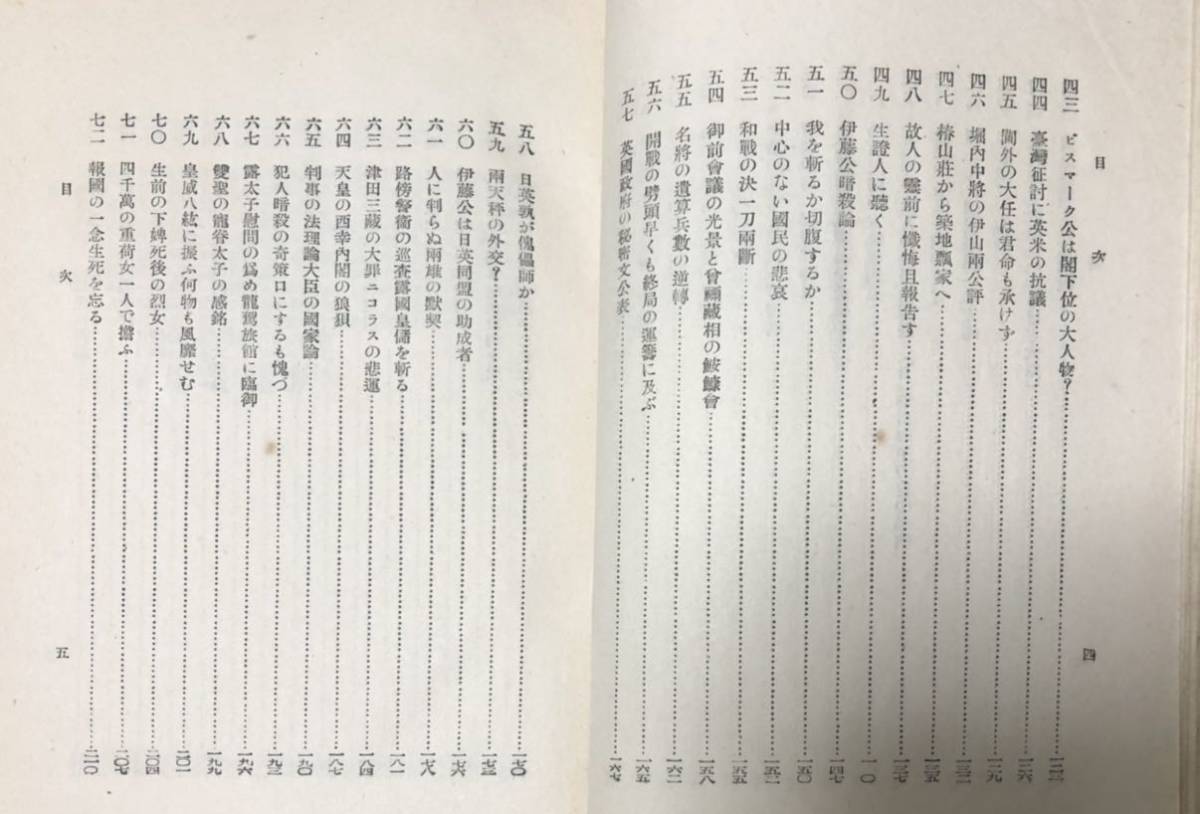 目次
四三 ビスマーク公は閣下位の大人物?……一二二
四四 臺灣征討に英米の抗議……一二六
四五 閫外の大任は君命も承けず……一二九
四六 堀内中將の伊山兩公評……一三二
四七 椿山莊から築地瓢家へ……一三五
四八 故人の靈前に懺悔且報告す……一三七
四九 生證人に聽く……一四〇
五〇 伊藤公暗殺論……一四七
五一 我を斬るか切腹するか……一五〇
五二 中心のない國民の悲哀……一五二
五三 和戰の決一刀兩斷……一五五
五四 御前會議の光景と曾禰藏相の鮟鱇會……一五八
五五 名將の遺算兵數の逆轉……一六二
五六 開戰の劈頭早くも終局の運籌に及ぶ……一六五
五七 英國政府の秘密文公表……一六七
四
五八 日英孰が傀儡師か……一七〇
五九 兩天秤の外交?……一七三
六〇 伊藤公は日英同盟の助成者……一七六
六一 人に判らぬ兩雄の默契……一七八
六二 路傍警衞の巡査露國皇儲を斬る……一八一
六三 津田三藏の大罪ニコラスの悲運……一八四
六四 天皇の西幸內閣の狼狽……一八七
六五 判事の法理論大臣の國家論……一九〇
六六 犯人暗殺の奇策口にするも愧づ……一九三
六七 露太子慰問の爲め龍駕旅館に臨御……一九六
六八 雙聖の寵眷太子の感銘……一九九
六九 皇威八紘に振ふ何物も風靡せむ……二〇一
七〇 生前の下婢死後の烈女……二〇四
七一 四千萬の重荷女一人で擔ふ……二〇七
七二 報國の一念生死を忘る……二一〇
目次
五